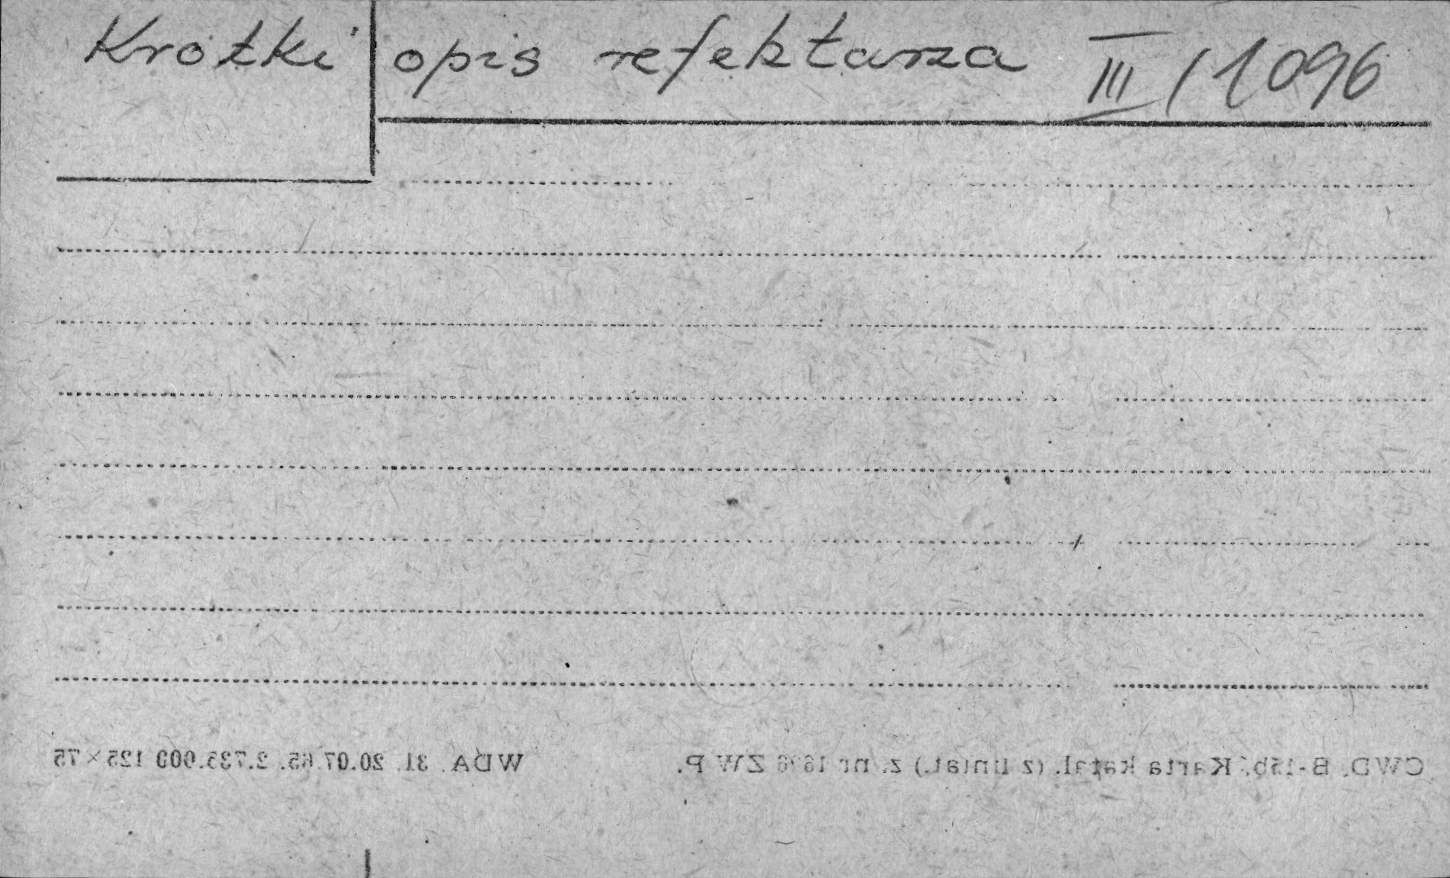 Krótki opis refektarza III/1096
CWD. B-15b. Karta katal. (z liniat.) z. nr 1696 ZWP. WDA. 31. 20.07.65. 2.735.000 125×75